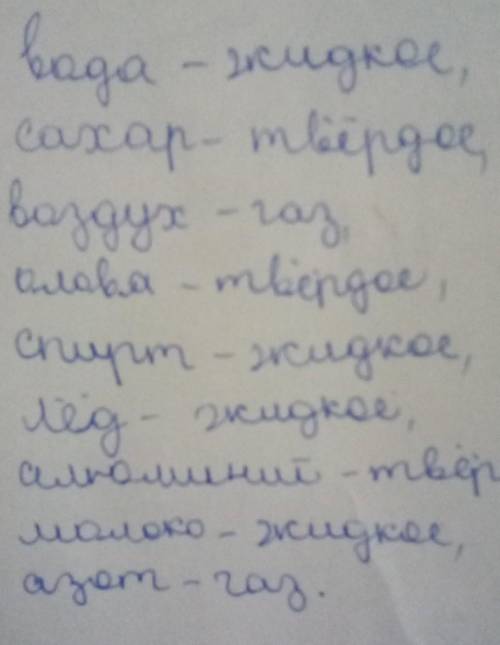 вода - жидкое,
сахар - твёрдое,
воздух - газ,
олова - твёрдое,
спирт - жидкое,
лёд - жидкое,
алюминий - твёр
молоко - жидкое,
азот - газ.